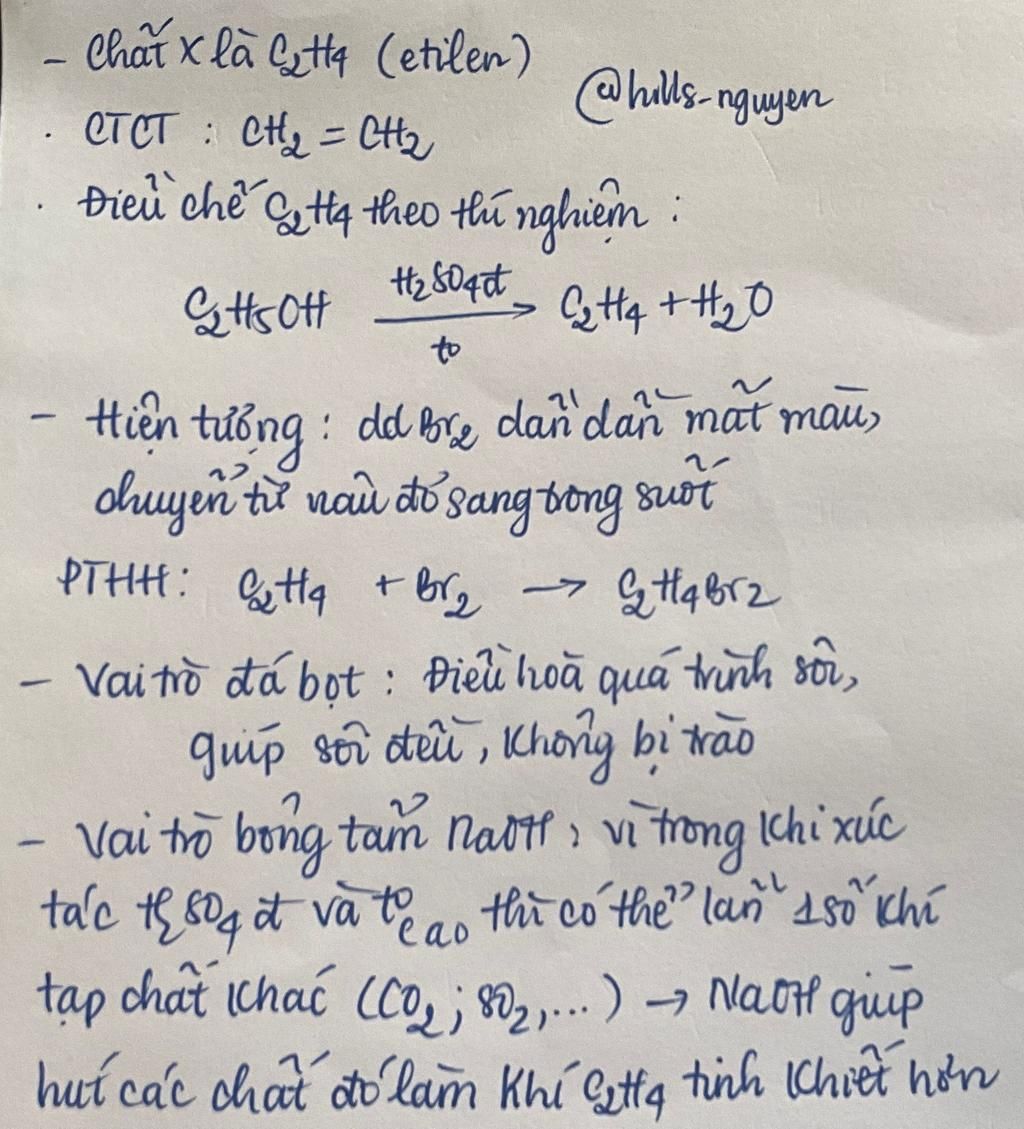 - Chất X là C₂H₄ (etilen)
@hills-nguyen
· CTCT : CH₂ = CH₂
· Điều chế C₂H₄ theo thí nghiệm :
C₂H₅OH H₂SO₄đ → t° C₂H₄ + H₂O
- Hiện tượng : dd Br₂ dần dần mất màu,
chuyển từ nâu đỏ sang trong suốt
PTHH: C₂H₄ + Br₂ → C₂H₄Br₂
- Vai trò đá bọt : Điều hoà quá trình sôi,
giúp sôi đều, không bị trào
- Vai trò bông tẩm NaOH, vì trong khi xúc
tác H₂SO₄ đ và t° cao thì có thể lẫn 1 số khí
tạp chất khác (CO₂; SO₂,...) → NaOH giúp
hút các chất đó làm khí C₂H₄ tinh khiết hơn